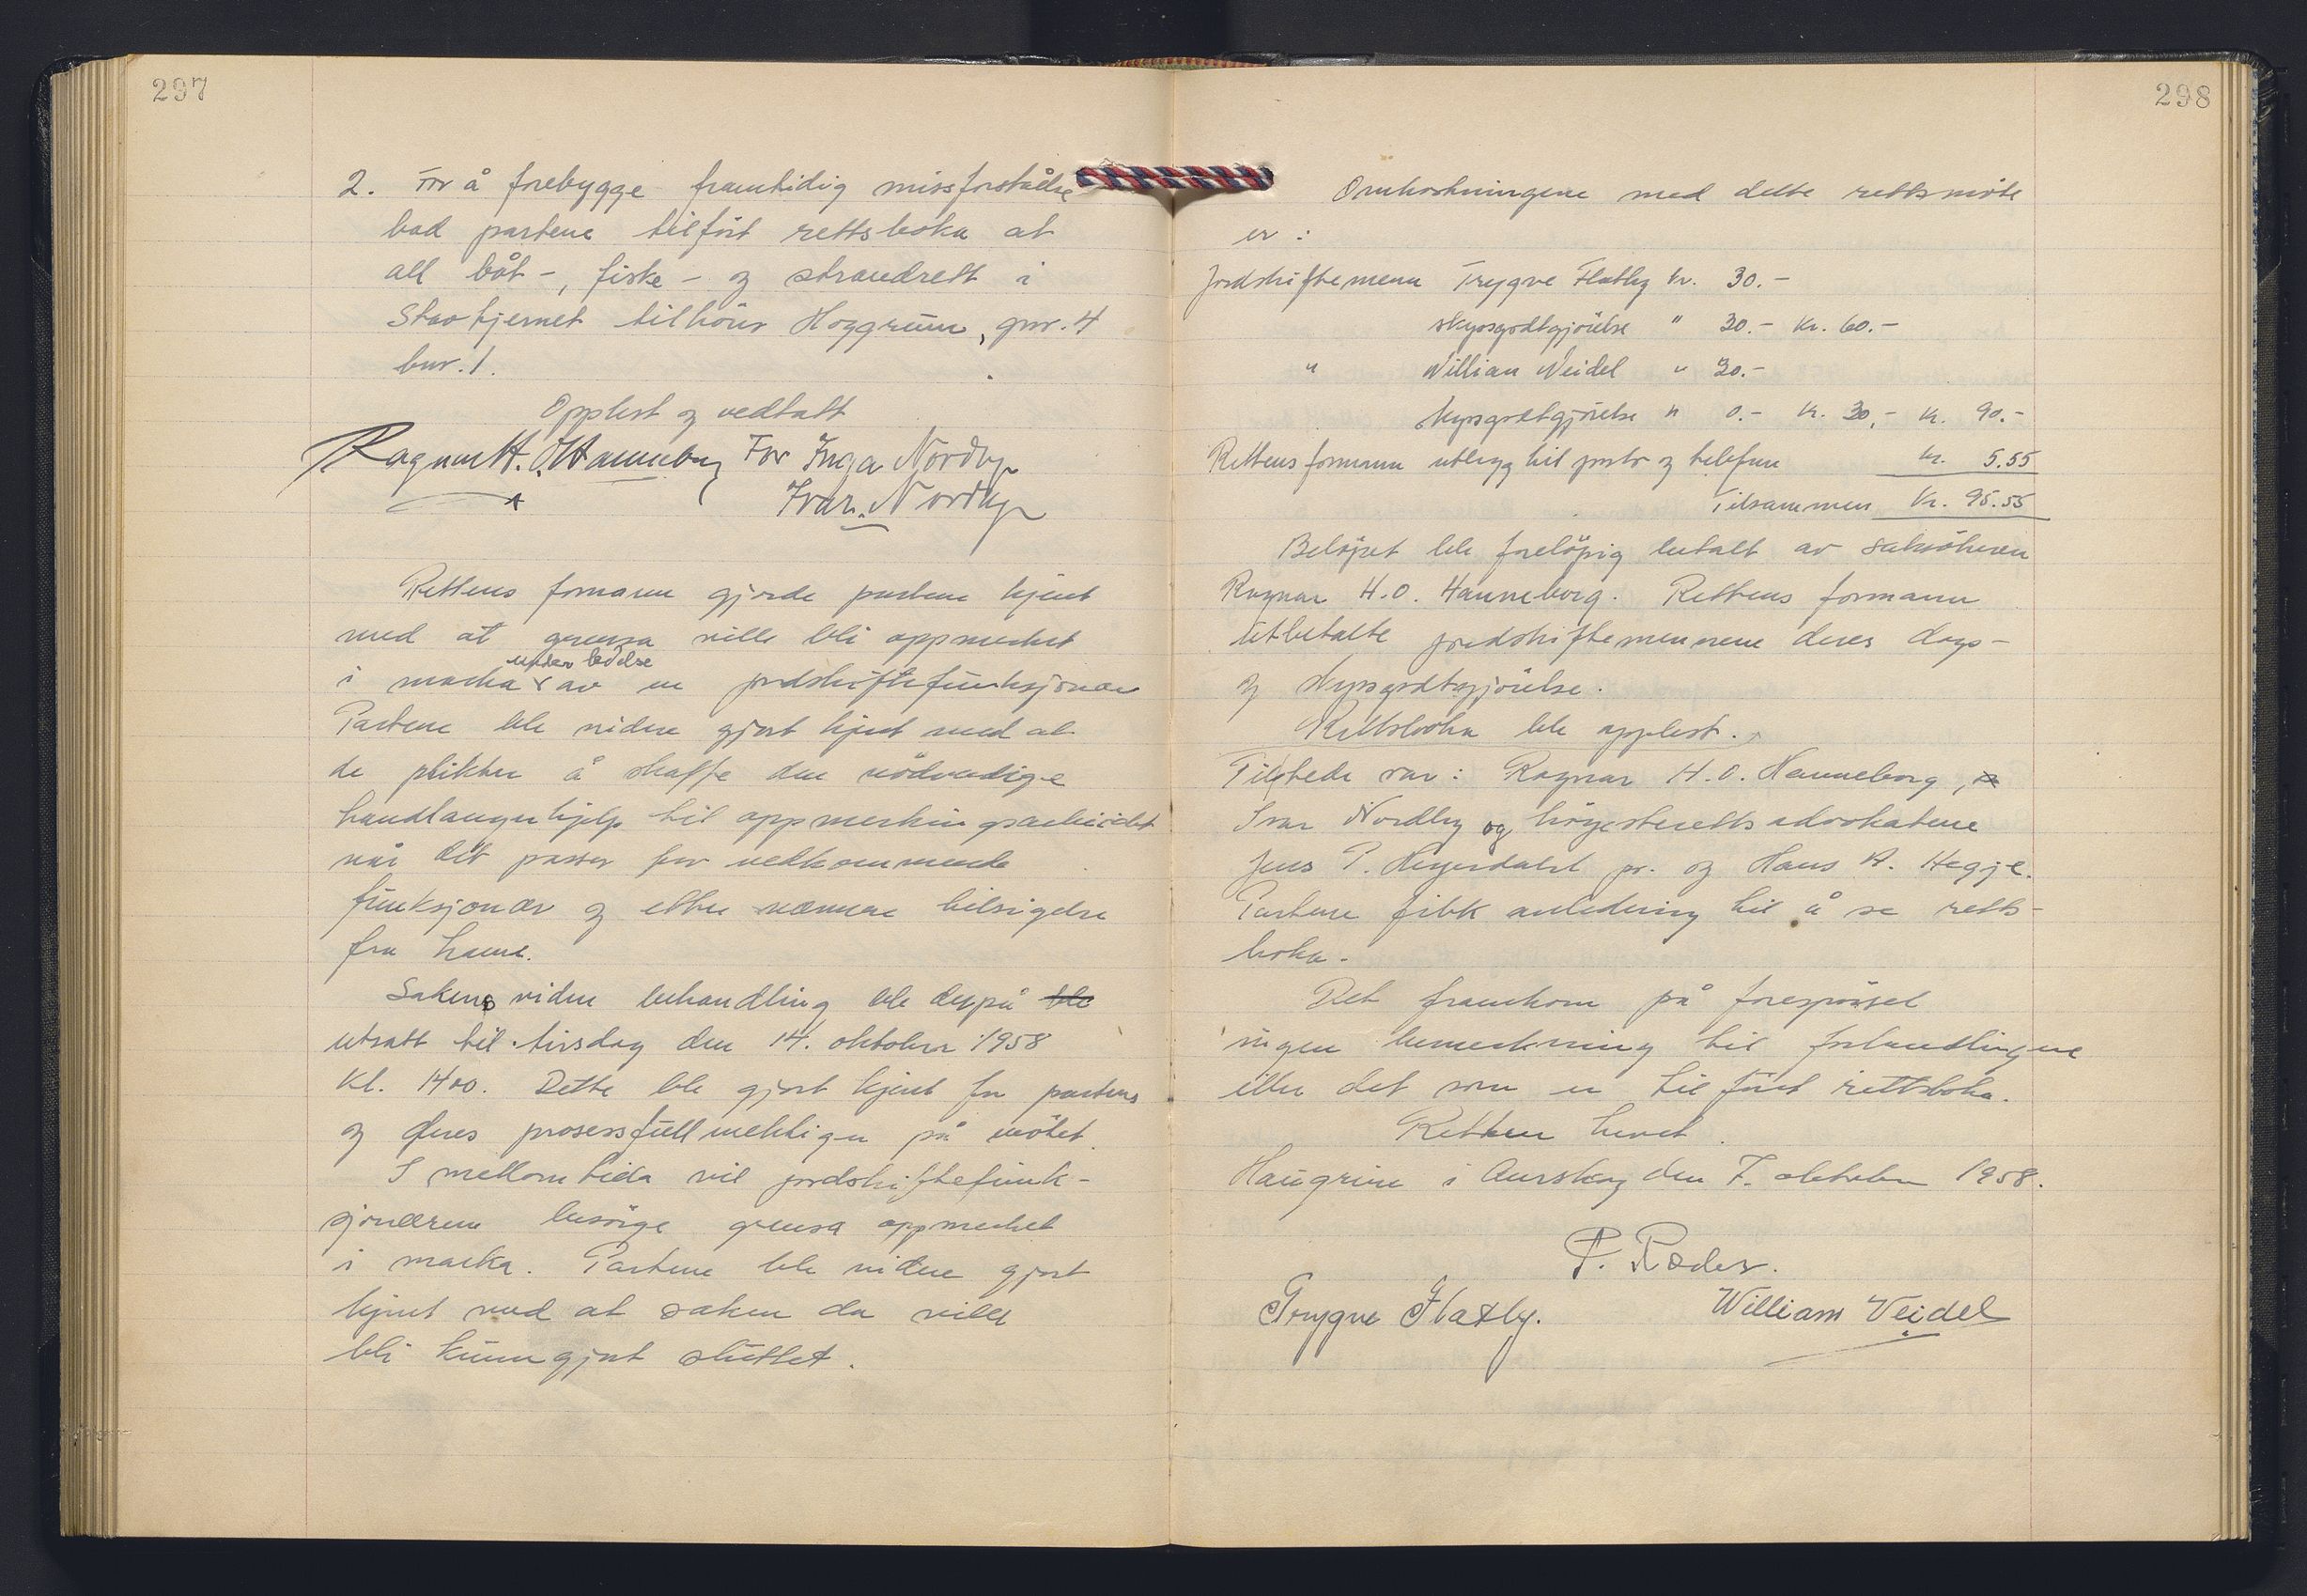 297
2. For å forebygge framtidig missforståelse
bad partene tilført rettsboka at
all båt-, fiske- og strandrett i
Stortjernet tilhører Hoggrim, gnr. 4
bnr. 1.
Opplest og vedtatt
Ragnar H. O. Hanneborg For Inga Nordby
Ivar Nordby
Rettens formann gjorde partene kjent
med at grensa ville bli oppmerket
under ledelse
i marka av en jordskiftefunksjonær
Partene ble videre gjort kjent med at
de plikter å skaffe den nödvendige
handlangerhjelp til oppmerkingsarbeidet
når det passer for vedkommende
funksjonær og etter nærmere tilsigelse
fra ham.
Sakens videre behandling ble derpå ble
utsatt til tirsdag den 14. oktober 1958
kl. 1400. Dette ble gjort kjent for partene
og deres prosessfullmektiger på mötet.
I mellomtida vil jordskiftefunk-
sjonæren besörge grensa oppmerket
i marka. Partene ble videre gjort
kjent med at saken da ville
bli kunngjort sluttet.
298
Omkostningene med dette rettsmöte
er :
Jordskiftemenn Trygve Flatby kr. 30.-
skyssgodtgjörelse " 30.- kr. 60.-
" William Veidel " 30.-
skyssgodtgjörelse " 0.- kr. 30,- kr. 90.-
Rettens formann utlegg til porto og telefon kr. 5.55
Tilsammen kr. 95.55
Belöpet ble forelöpig betalt av saksökeren
Ragnar H.O. Hanneborg. Rettens formann
utbetalte jordskiftemennene deres dags-
og skyssgodtgjörelse.
Rettsboka ble opplest.
Tilstede var: Ragnar H.O. Hanneborg,
Ivar Nordby og höyesterettsadvokatene
Jens P. Heyerdahl jr. og Hans K. Hegje.
Partene fikk anledning til å se retts-
boka.
Det framkom på forespörsel
ingen bemerkning til forhandlingene
eller det som er tilfört rettsboka.
Retten hevet.
Haugrim i Aurskog den 7. oktober 1958.
P. Ræder.
Trygve Flatby. William Veidel